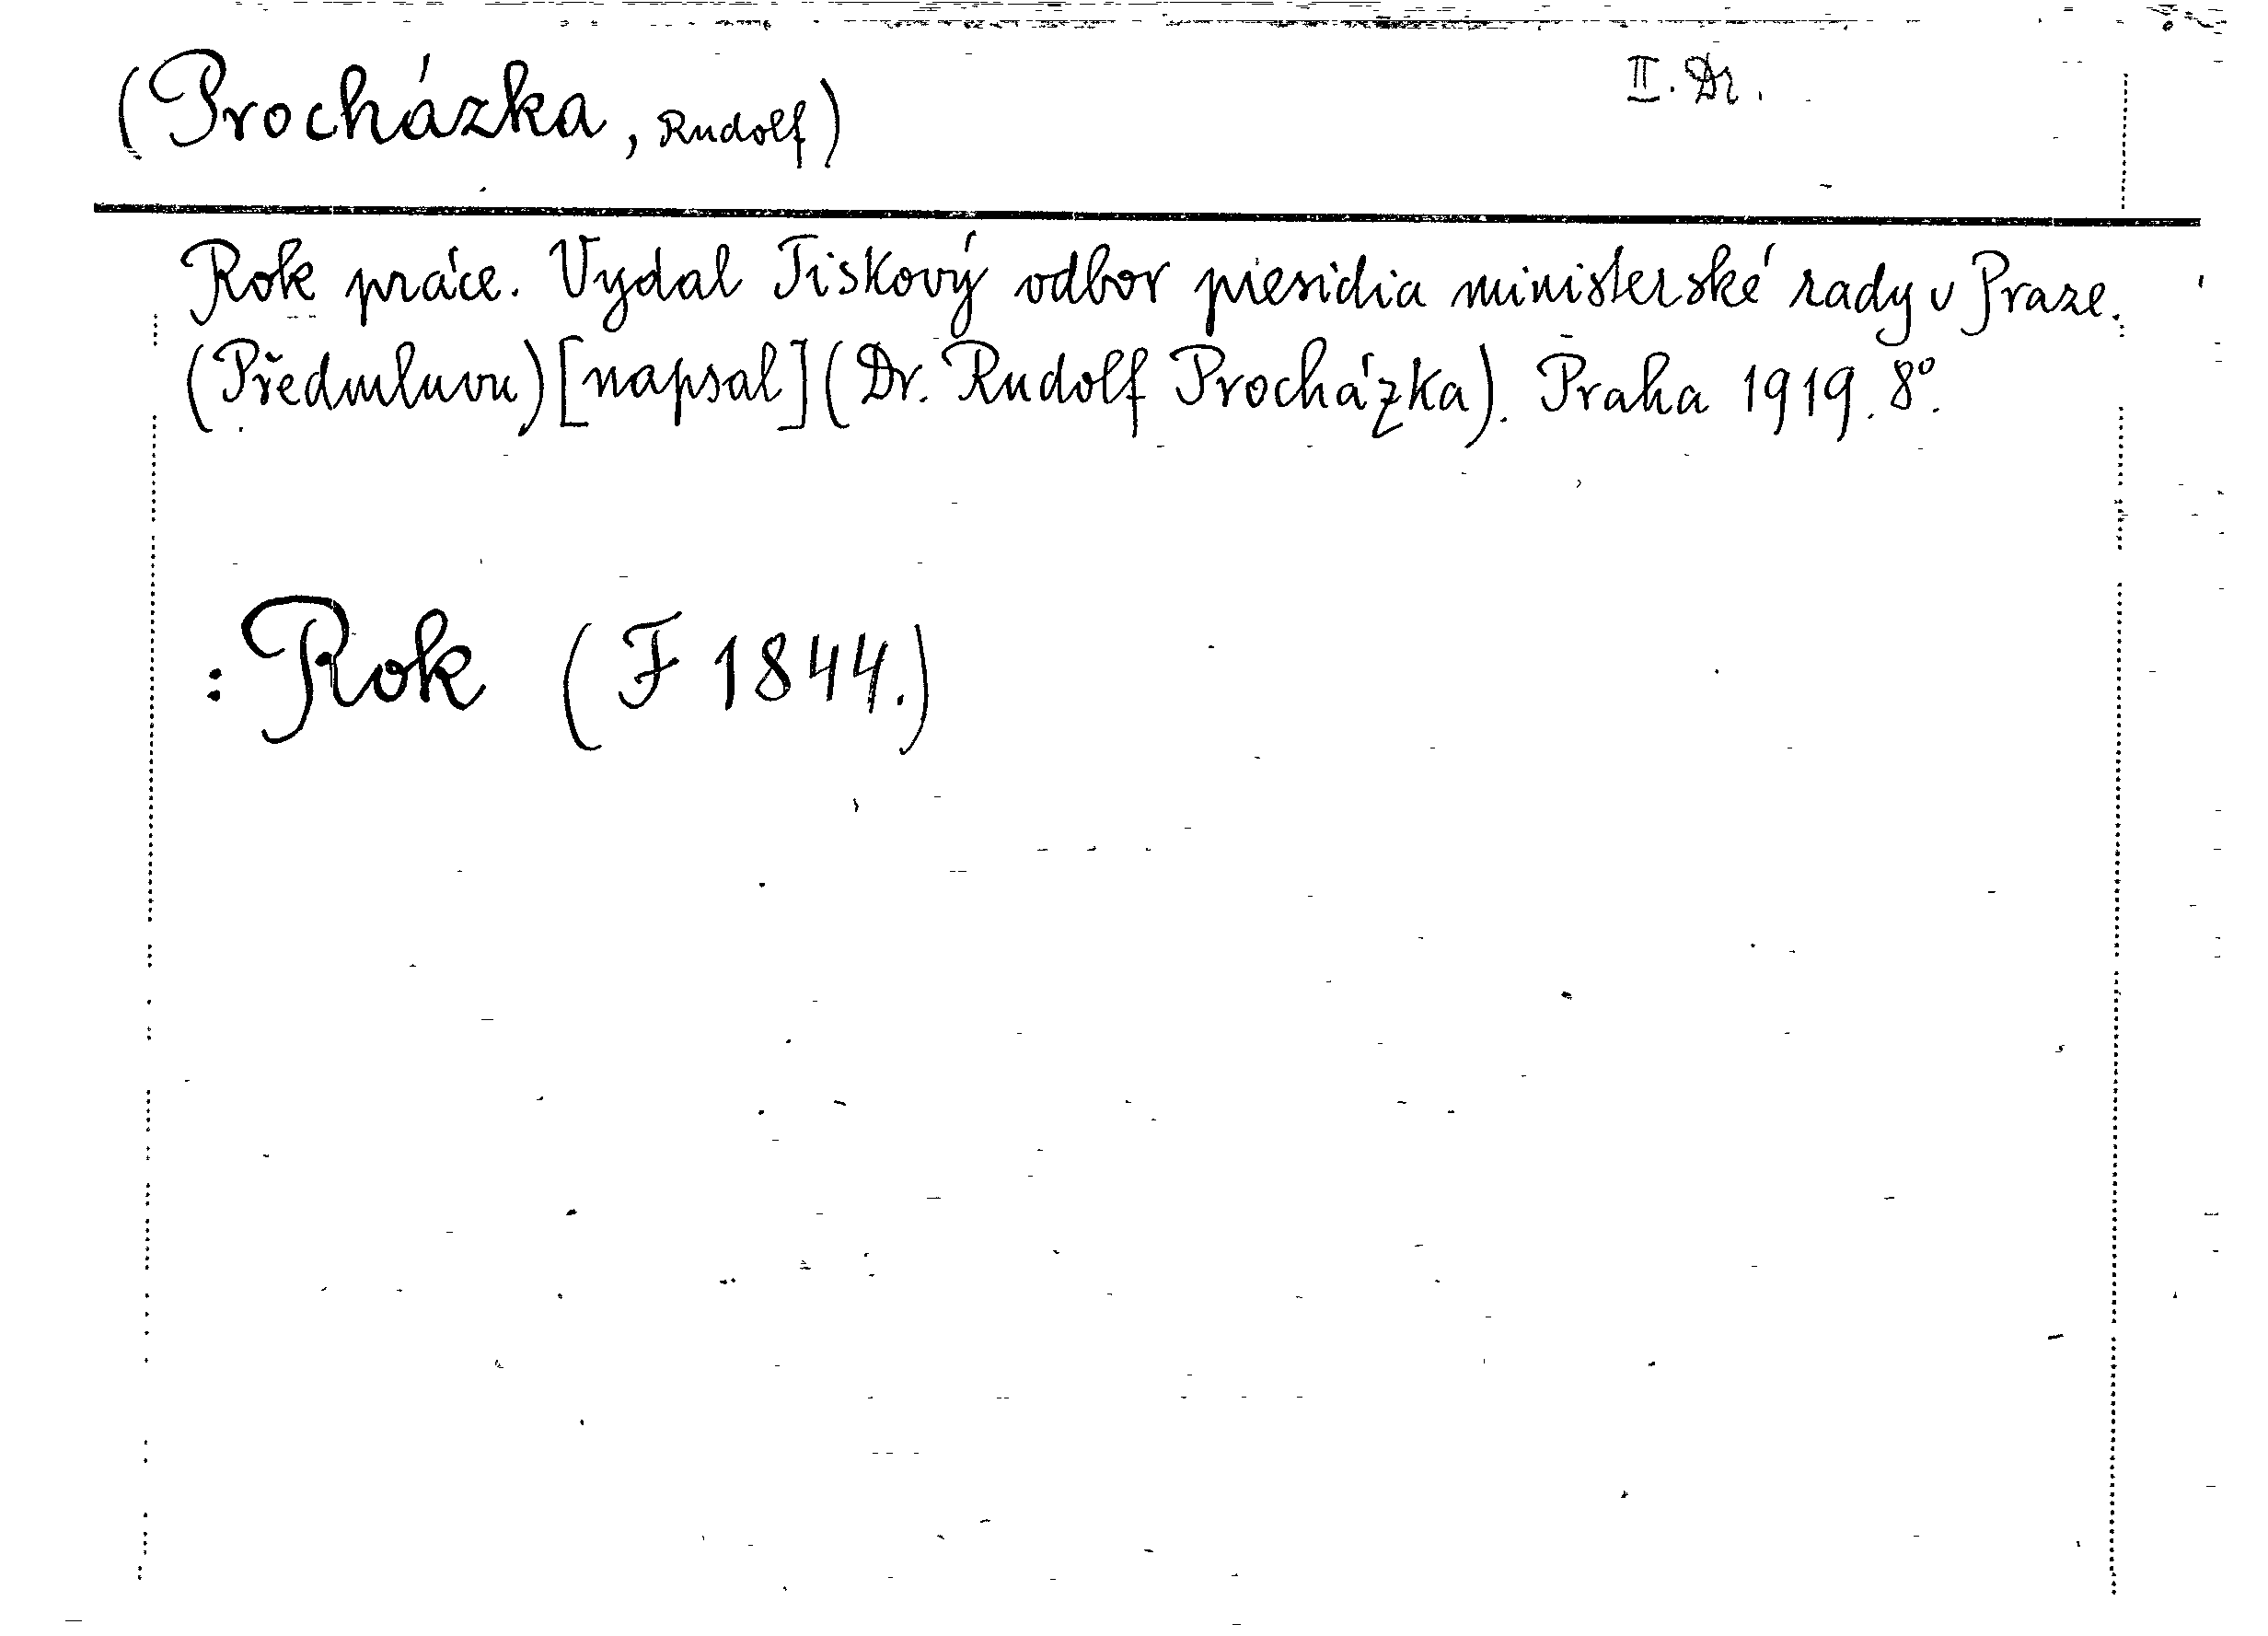 (Procházka, Rudolf) II. Dr.
Rok práce. Vydal Tiskový odbor presidia ministerské rady v Praze.
(Předmluvu) [napsal] (Dr. Rudolf Procházka). Praha 1919. 8°.
: Rok (F 1844.)